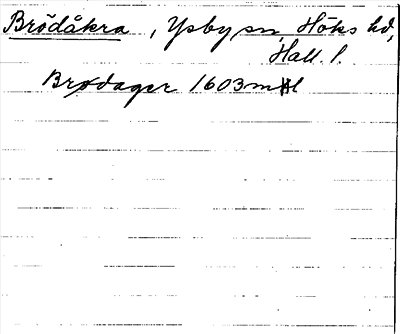 Brödåkra, Ysby sn, Höks hd,
Hall. l.
Brodager 1603 mHl